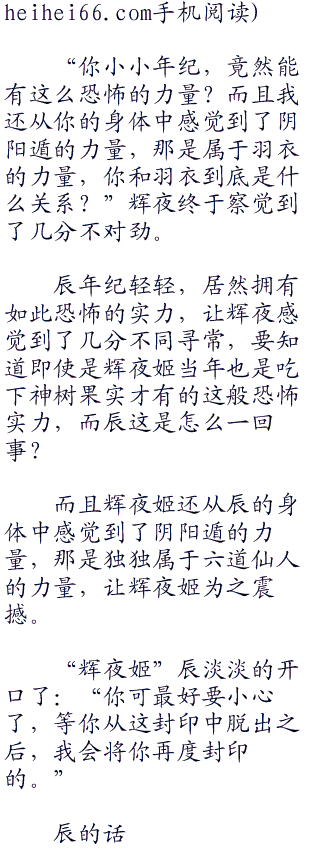 heihei66.com手机阅读)
“你小小年纪，竟然能
有这么恐怖的力量？而且我
还从你的身体中感觉到了阴
阳遁的力量，那是属于羽衣
的力量，你和羽衣到底是什
么关系？”辉夜终于察觉到
了几分不对劲。
辰年纪轻轻，居然拥有
如此恐怖的实力，让辉夜感
觉到了几分不同寻常，要知
道即使是辉夜姬当年也是吃
下神树果实才有的这般恐怖
实力，而辰这是怎么一回
事？
而且辉夜姬还从辰的身
体中感觉到了阴阳遁的力
量，那是独独属于六道仙人
的力量，让辉夜姬为之震
撼。
“辉夜姬”辰淡淡的开
口了：“你可最好要小心
了，等你从这封印中脱出之
后，我会将你再度封印
的。”
辰的话